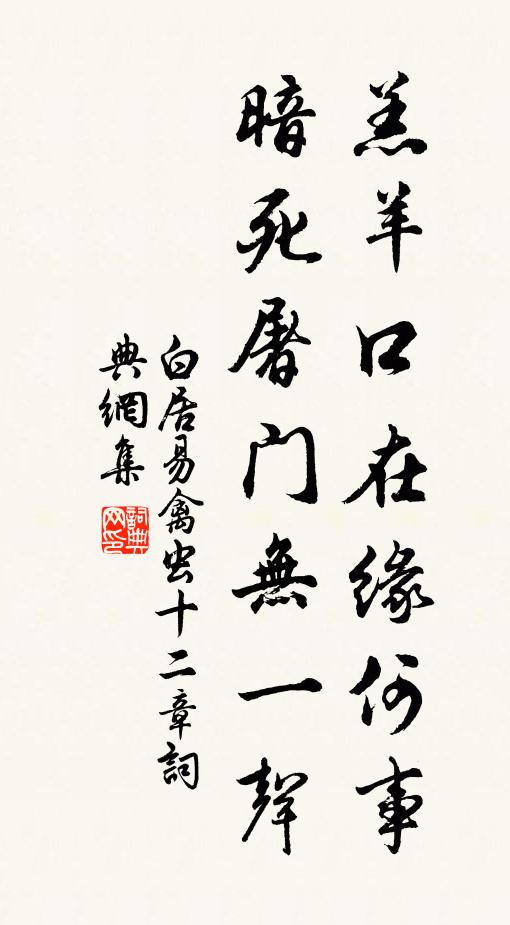 羔羊口在緣何事
暗死屠門無一聲
白居易禽虫十二章詞
典網集
詞典
网印